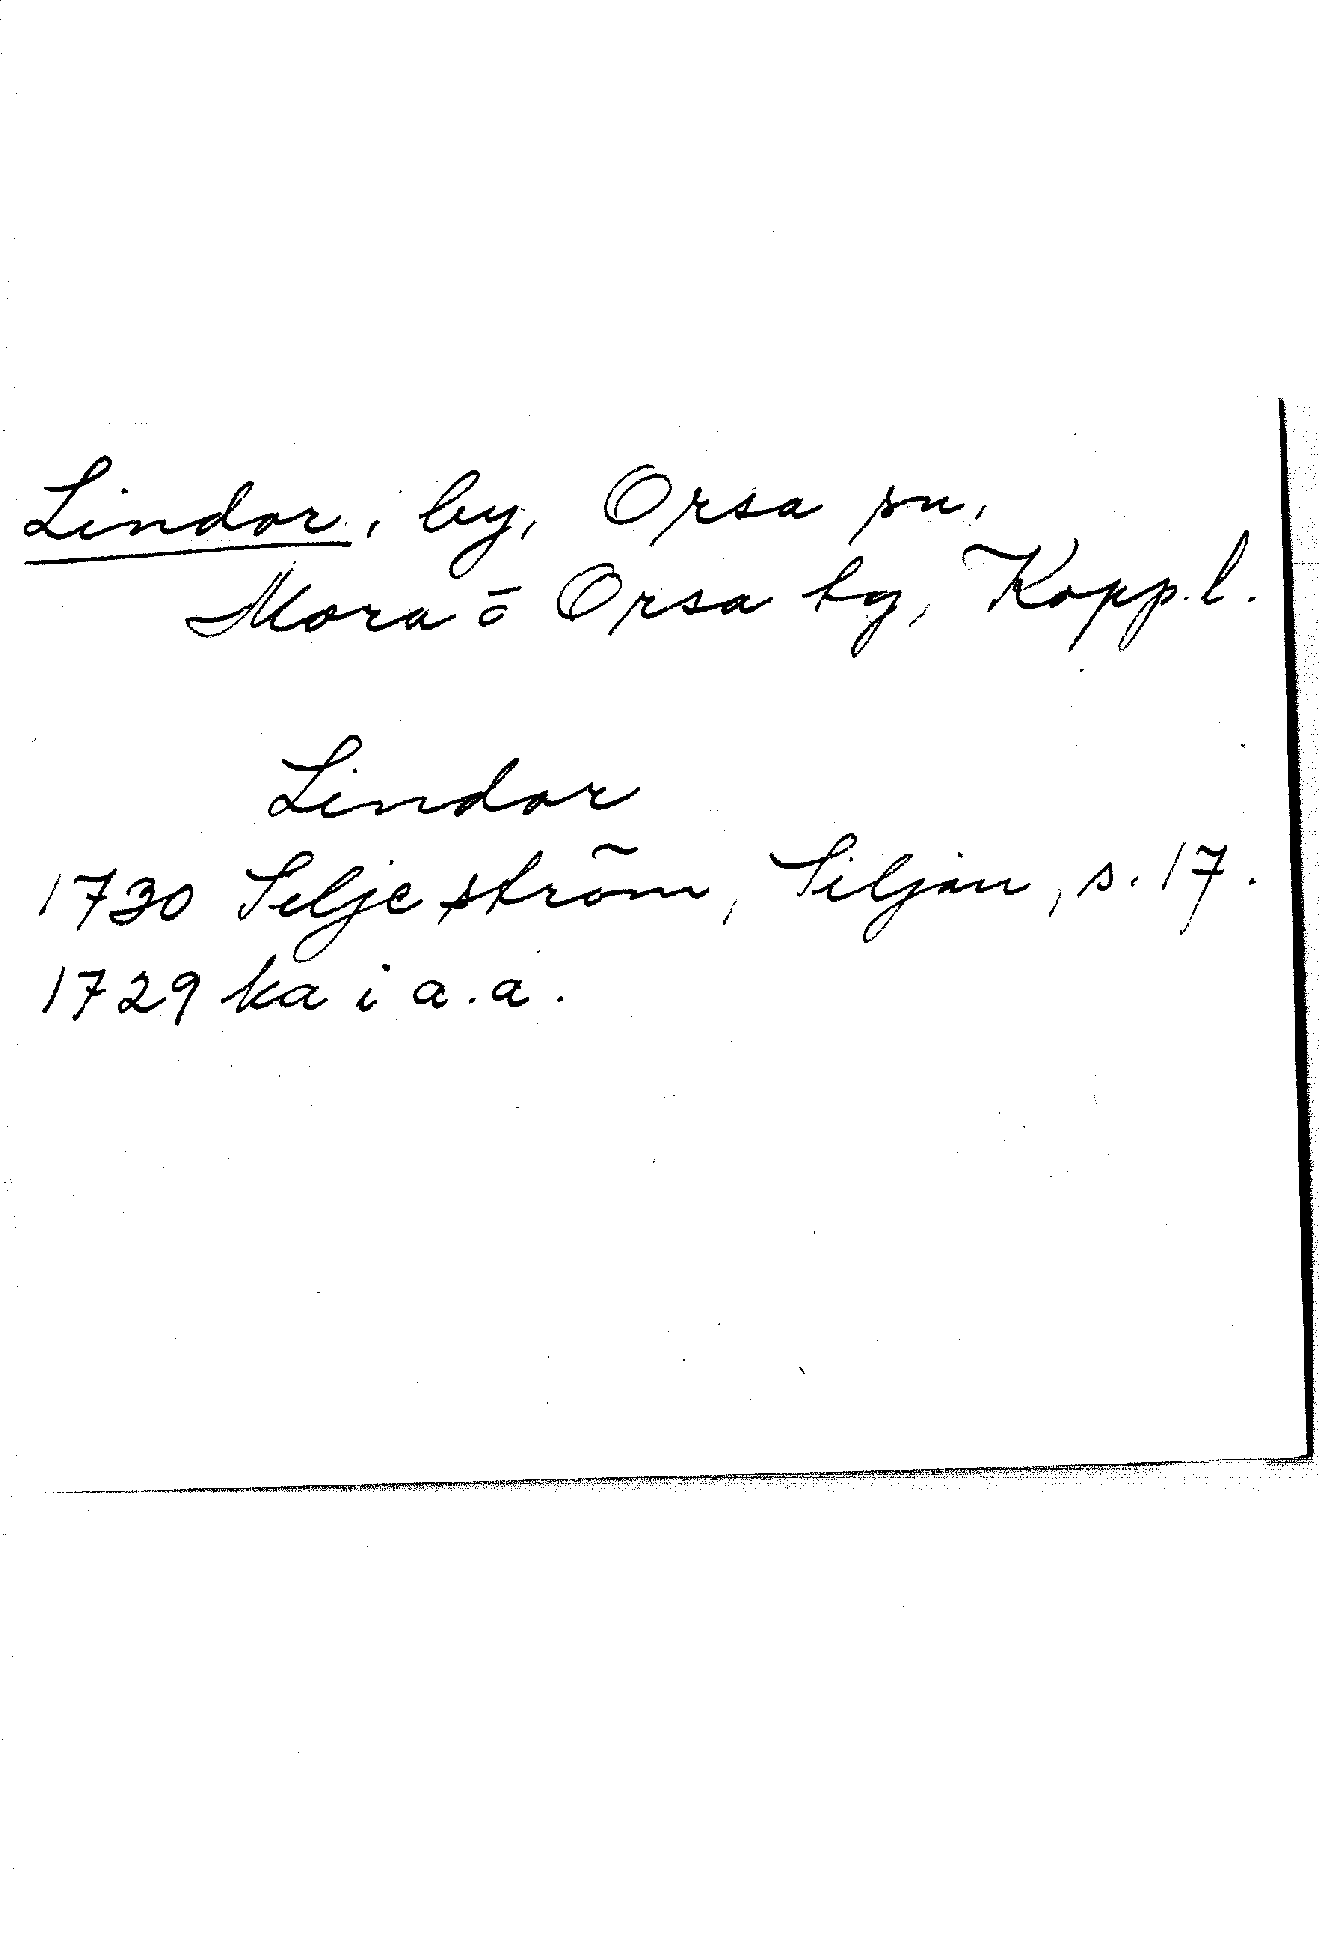 Lindor, by, Orsa sn,
Mora o Orsa tg, Kopp. l.
Lindor
1730 Seljeström, Siljan, s. 17.
1729 ka i a.a.